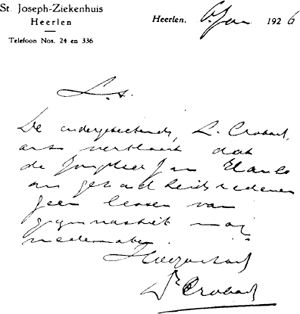 St. Joseph-Ziekenhuis
Heerlen
Telefoon Nos. 24 en 336
Heerlen, 6 Jan 1926
L.S.
De ondergeteekende, L. Crobach,
arts verklaart dat
de Jongeheer Jan Hanlo
om gezondheidsredenen
geen lessen van
gymnastiek mag
medemaken.
Hoogachtend
Dr Crobach